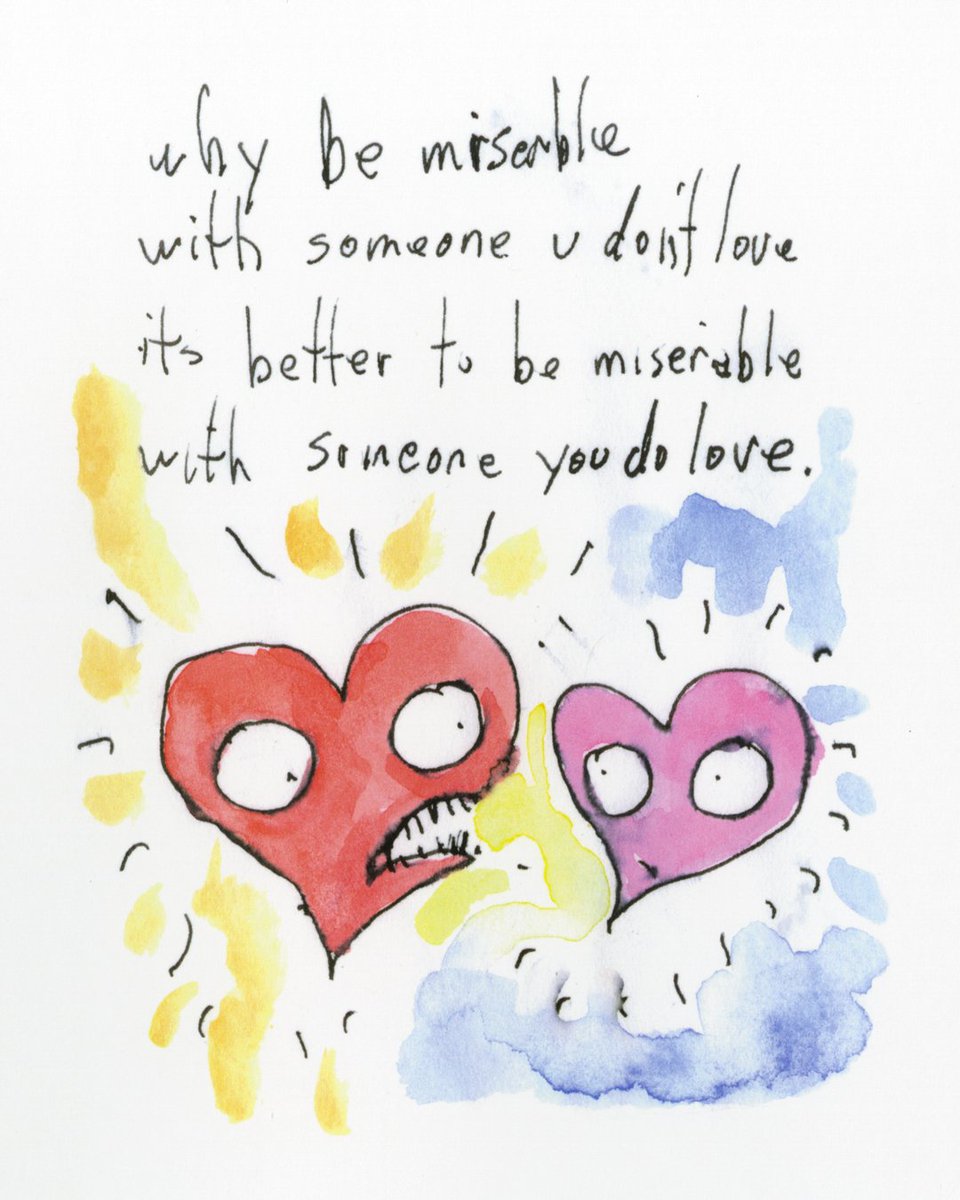 why be miserable
with someone u don't love
it's better to be miserable
with someone you do love.